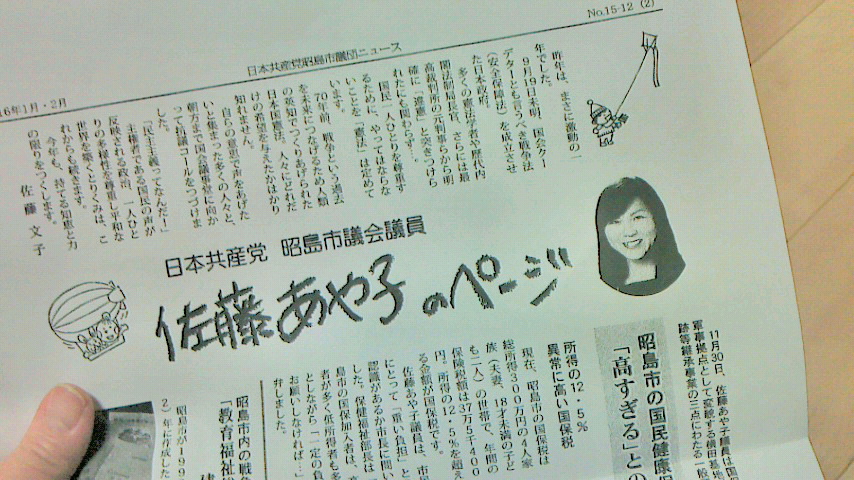 No.15-12 (2)
日本共産党昭島市議団ニュース
16年1月・2月
昨年は、まさに激動の一
年でした。
9月19日未明、国会クー
デターとも言うべき戦争法
(安全保障法)を成立させ
た日本政府。
多くの憲法学者や歴代内
閣法制局長官、さらには最
高裁判所の元判事らから明
確に「違憲」と突きつけら
れたにも関わらず…。
国民一人ひとりを尊重す
るために、やってはならな
いことを「憲法」は定めて
います。
70年前、戦争という過去
を未来につなげるため人類
の英知でつくりあげられた
日本国憲法。人々にどれだ
けの希望を与えたかはかり
知れません。
自らの意思で声をあげた
いと集まった多くの人々と、
朝方まで国会議事堂に向か
って抗議コールをつづけま
した。
「民主主義ってなんだ!」
主権者である国民の声が
反映される政治、一人ひと
りの多様性を尊重し平和な
世界を築くとりくみは、こ
れからも続きます。
今年も、持てる知恵と力
の限りをつくします。
佐藤文子
日本共産党 昭島市議会議員
佐藤あや子のページ
11月30日、佐藤あや子議員は国保
軍事拠点として変貌する横田基地
跡等継承事業の三点にわたる一般
昭島市の国民健康保
「高すぎる」との
所得の12・5%
異常に高い国保税
現在、昭島市の国保税は
総所得300万円の4人家
族(夫妻、18才未満の子ど
も二人)の世帯で、年間の
保険税額は37万5千400
円。所得の12・5%を超え
る金額が国保税です。
佐藤あや子議員は、市民
にとって「重い負担」と
認識があるか市長に問い
した。保健福祉部長は「
島市の国保加入者は、高
者が多く低所得者も多
としながら「一定の負
お願いしなければ…」
弁しました。
昭島市内の戦争
「教育福祉
昭島市が199
2)年に作成した